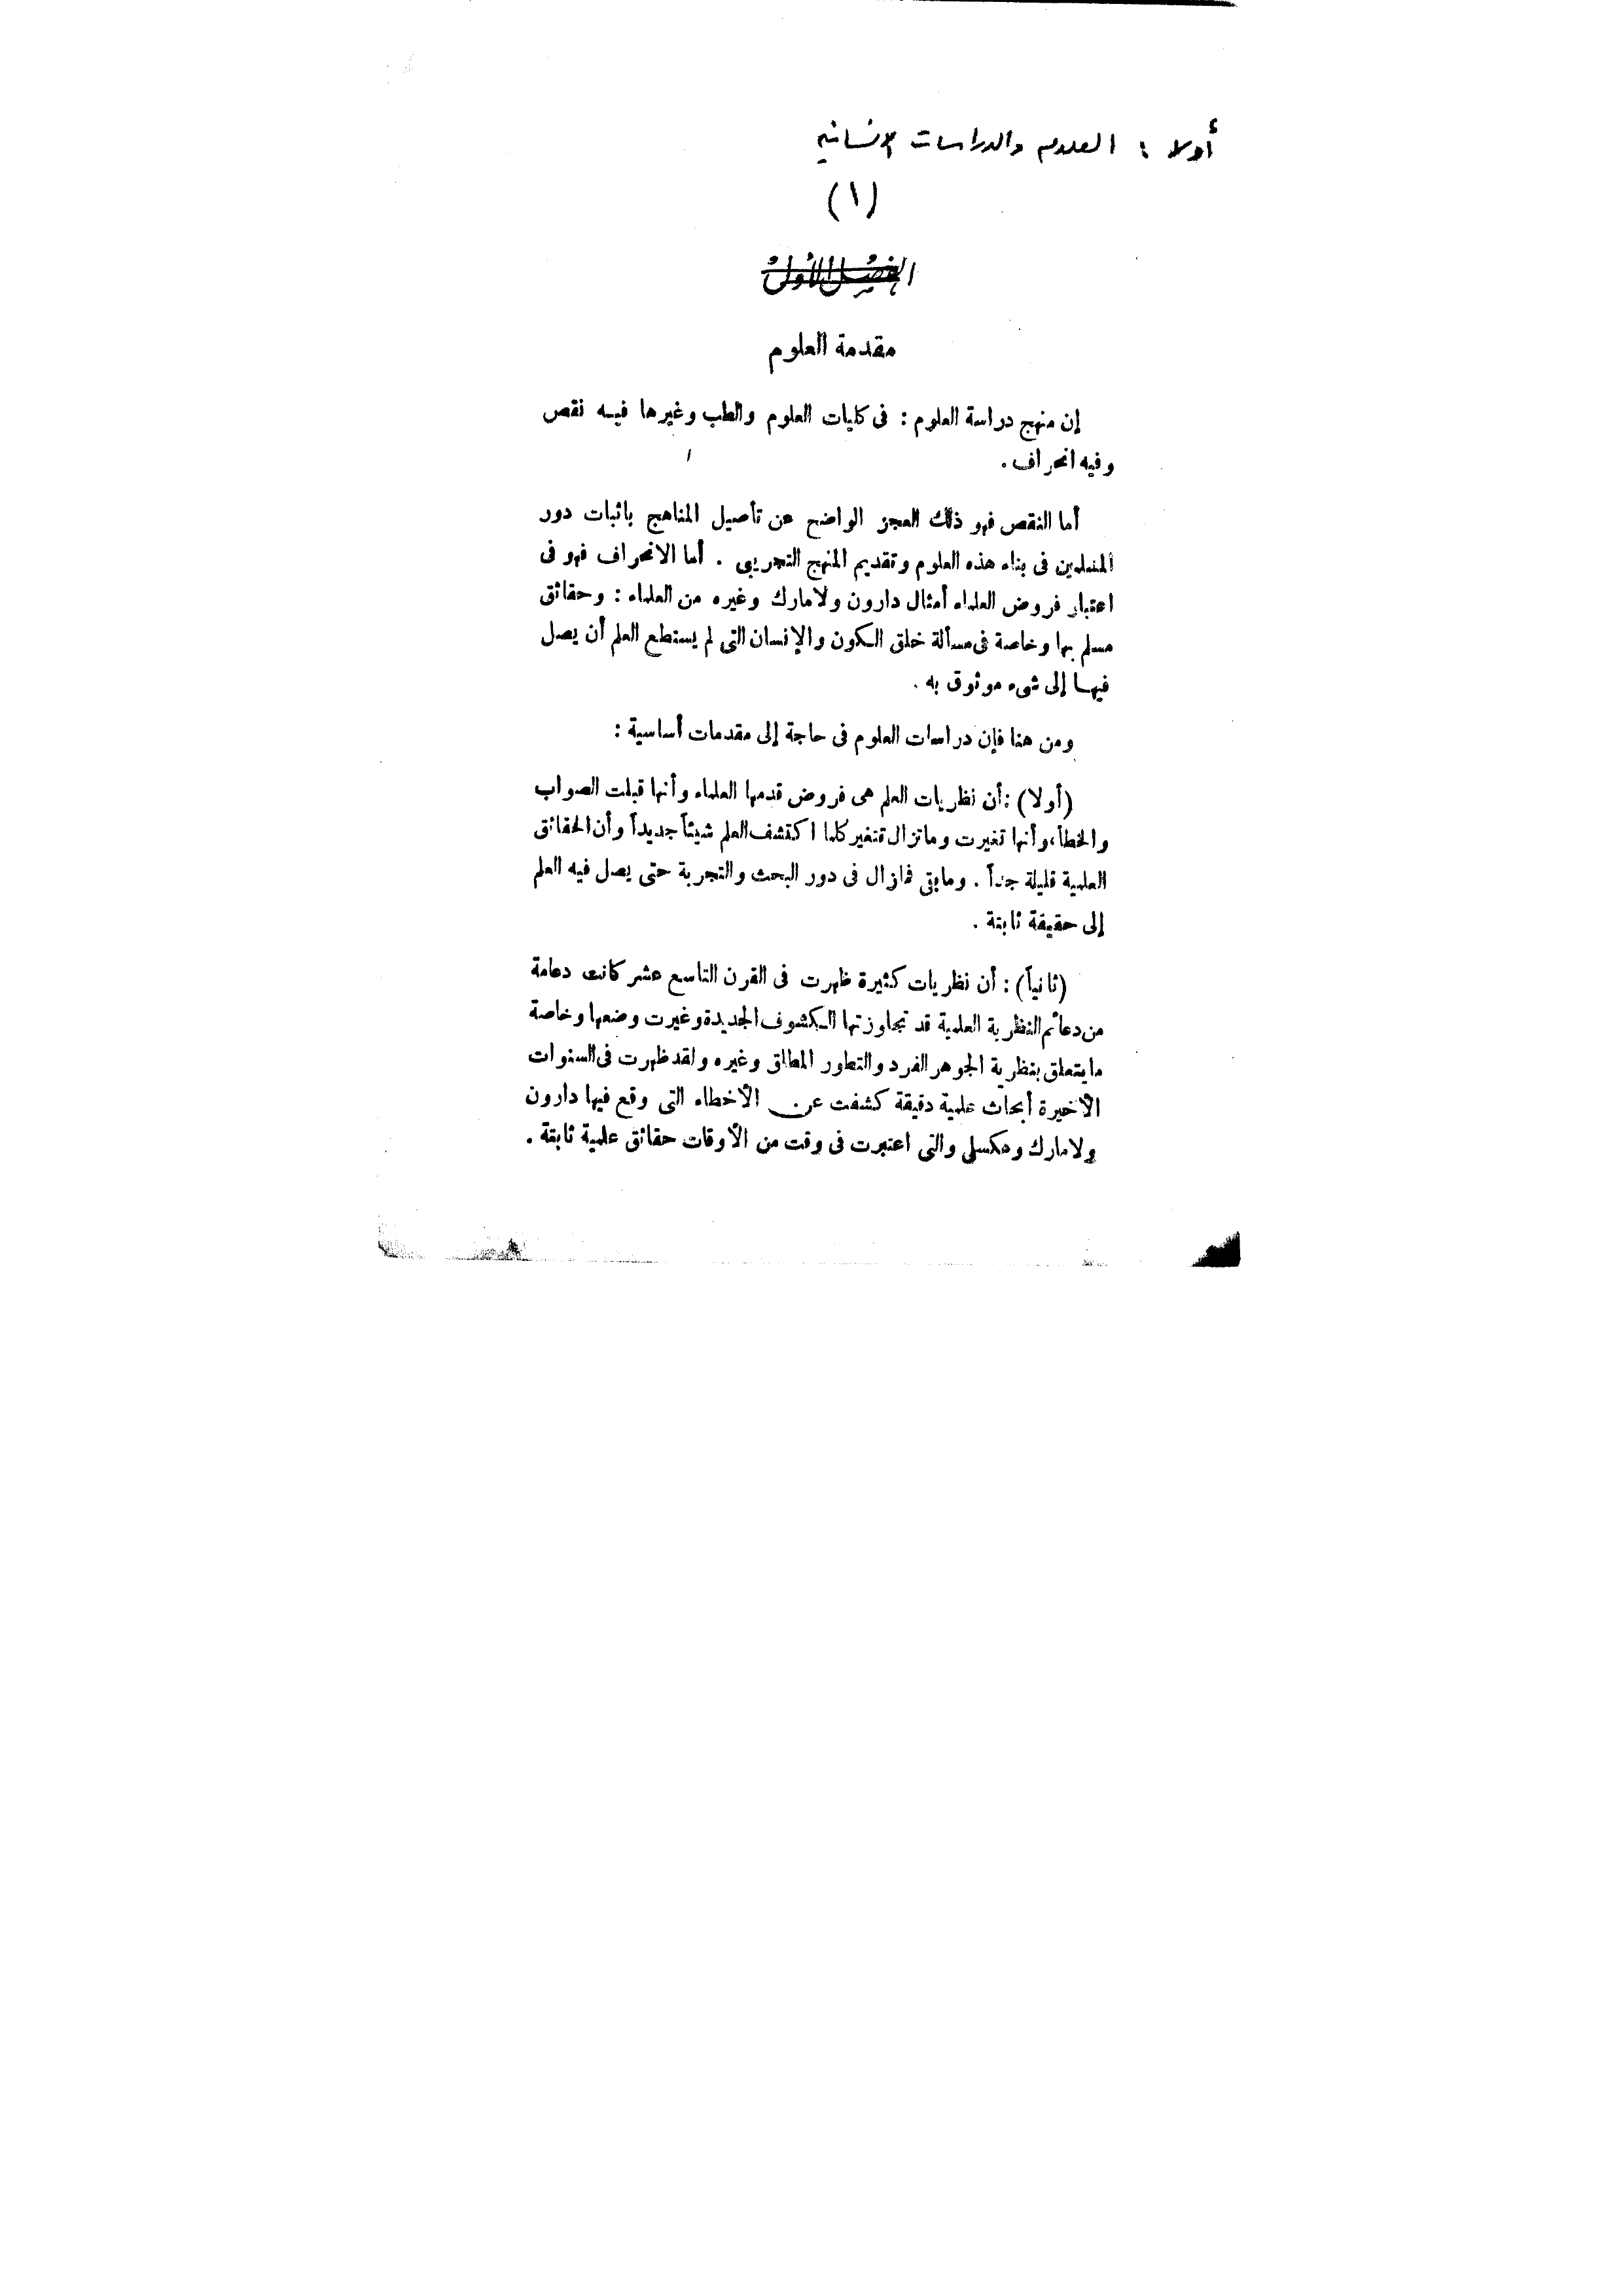 أولا : العلوم والدراسات الانسانية
(١)
الفصل الأول
مقدمة العلوم
إن منهج دراسة العلوم : فى كليات العلوم والطب وغيرها فيه نقص
وفيه انحراف .
أما النقص فهو ذلك العجز الواضح عن تأصيل المناهج باثبات دور
المسلمين فى بناء هذه العلوم وتقديم المنهج التجريبى . أما الانحراف فهو فى
اعتبار فروض العلماء أمثال دارون ولامارك وغيره من العلماء : وحقائق
مسلم بها وخاصة فى مسألة خلق الكون والإنسان التى لم يستطع العلم أن يصل
فيها إلى شىء موثوق به .
ومن هنا فإن دراسات العلوم فى حاجة إلى مقدمات أساسية :
(أولا) : أن نظريات العلم هى فروض قدمها العلماء وأنها قبلت الصواب
والخطأ، وأنها تغيرت وماتزال تتغير كلما اكتشف العلم شيئاً جديداً وأن الحقائق
العلمية قليلة جداً . ومابقى فمازال فى دور البحث والتجربة حتى يصل فيه العلم
إلى حقيقة ثابتة .
(ثانياً) : أن نظريات كثيرة ظهرت فى القرن التاسع عشر كانت دعامة
من دعائم النظرية العلمية قد تجاوزتها الكشوف الجديدة وغيرت وضعها وخاصة
مايتعلق بنظرية الجوهر الفرد والتطور المطلق وغيره ولقد ظهرت فى السنوات
الأخيرة أبحاث علمية دقيقة كشفت عن الأخطاء التى وقع فيها دارون
ولامارك وهكسلى والتى اعتبرت فى وقت من الأوقات حقائق علمية ثابتة .